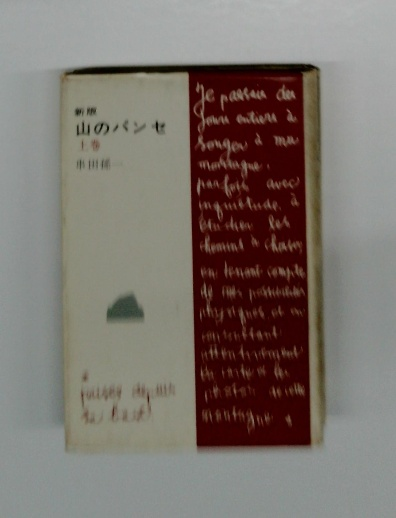 新版
山のパンセ
上巻
串田孫一
Je passais des
jours entiers à
songer à ma
montagne,
parfois avec
inquiétude, à
étudier les
chemins à choisir,
en tenant compte
de mes particularités
physiques et en
consultant
attentivement
la carte
de cette
montagne